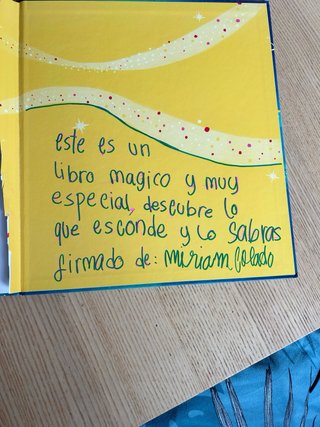 este es un
libro magico y muy
especial, descubre lo
que esconde y lo sabras
firmado de: miriam Colado